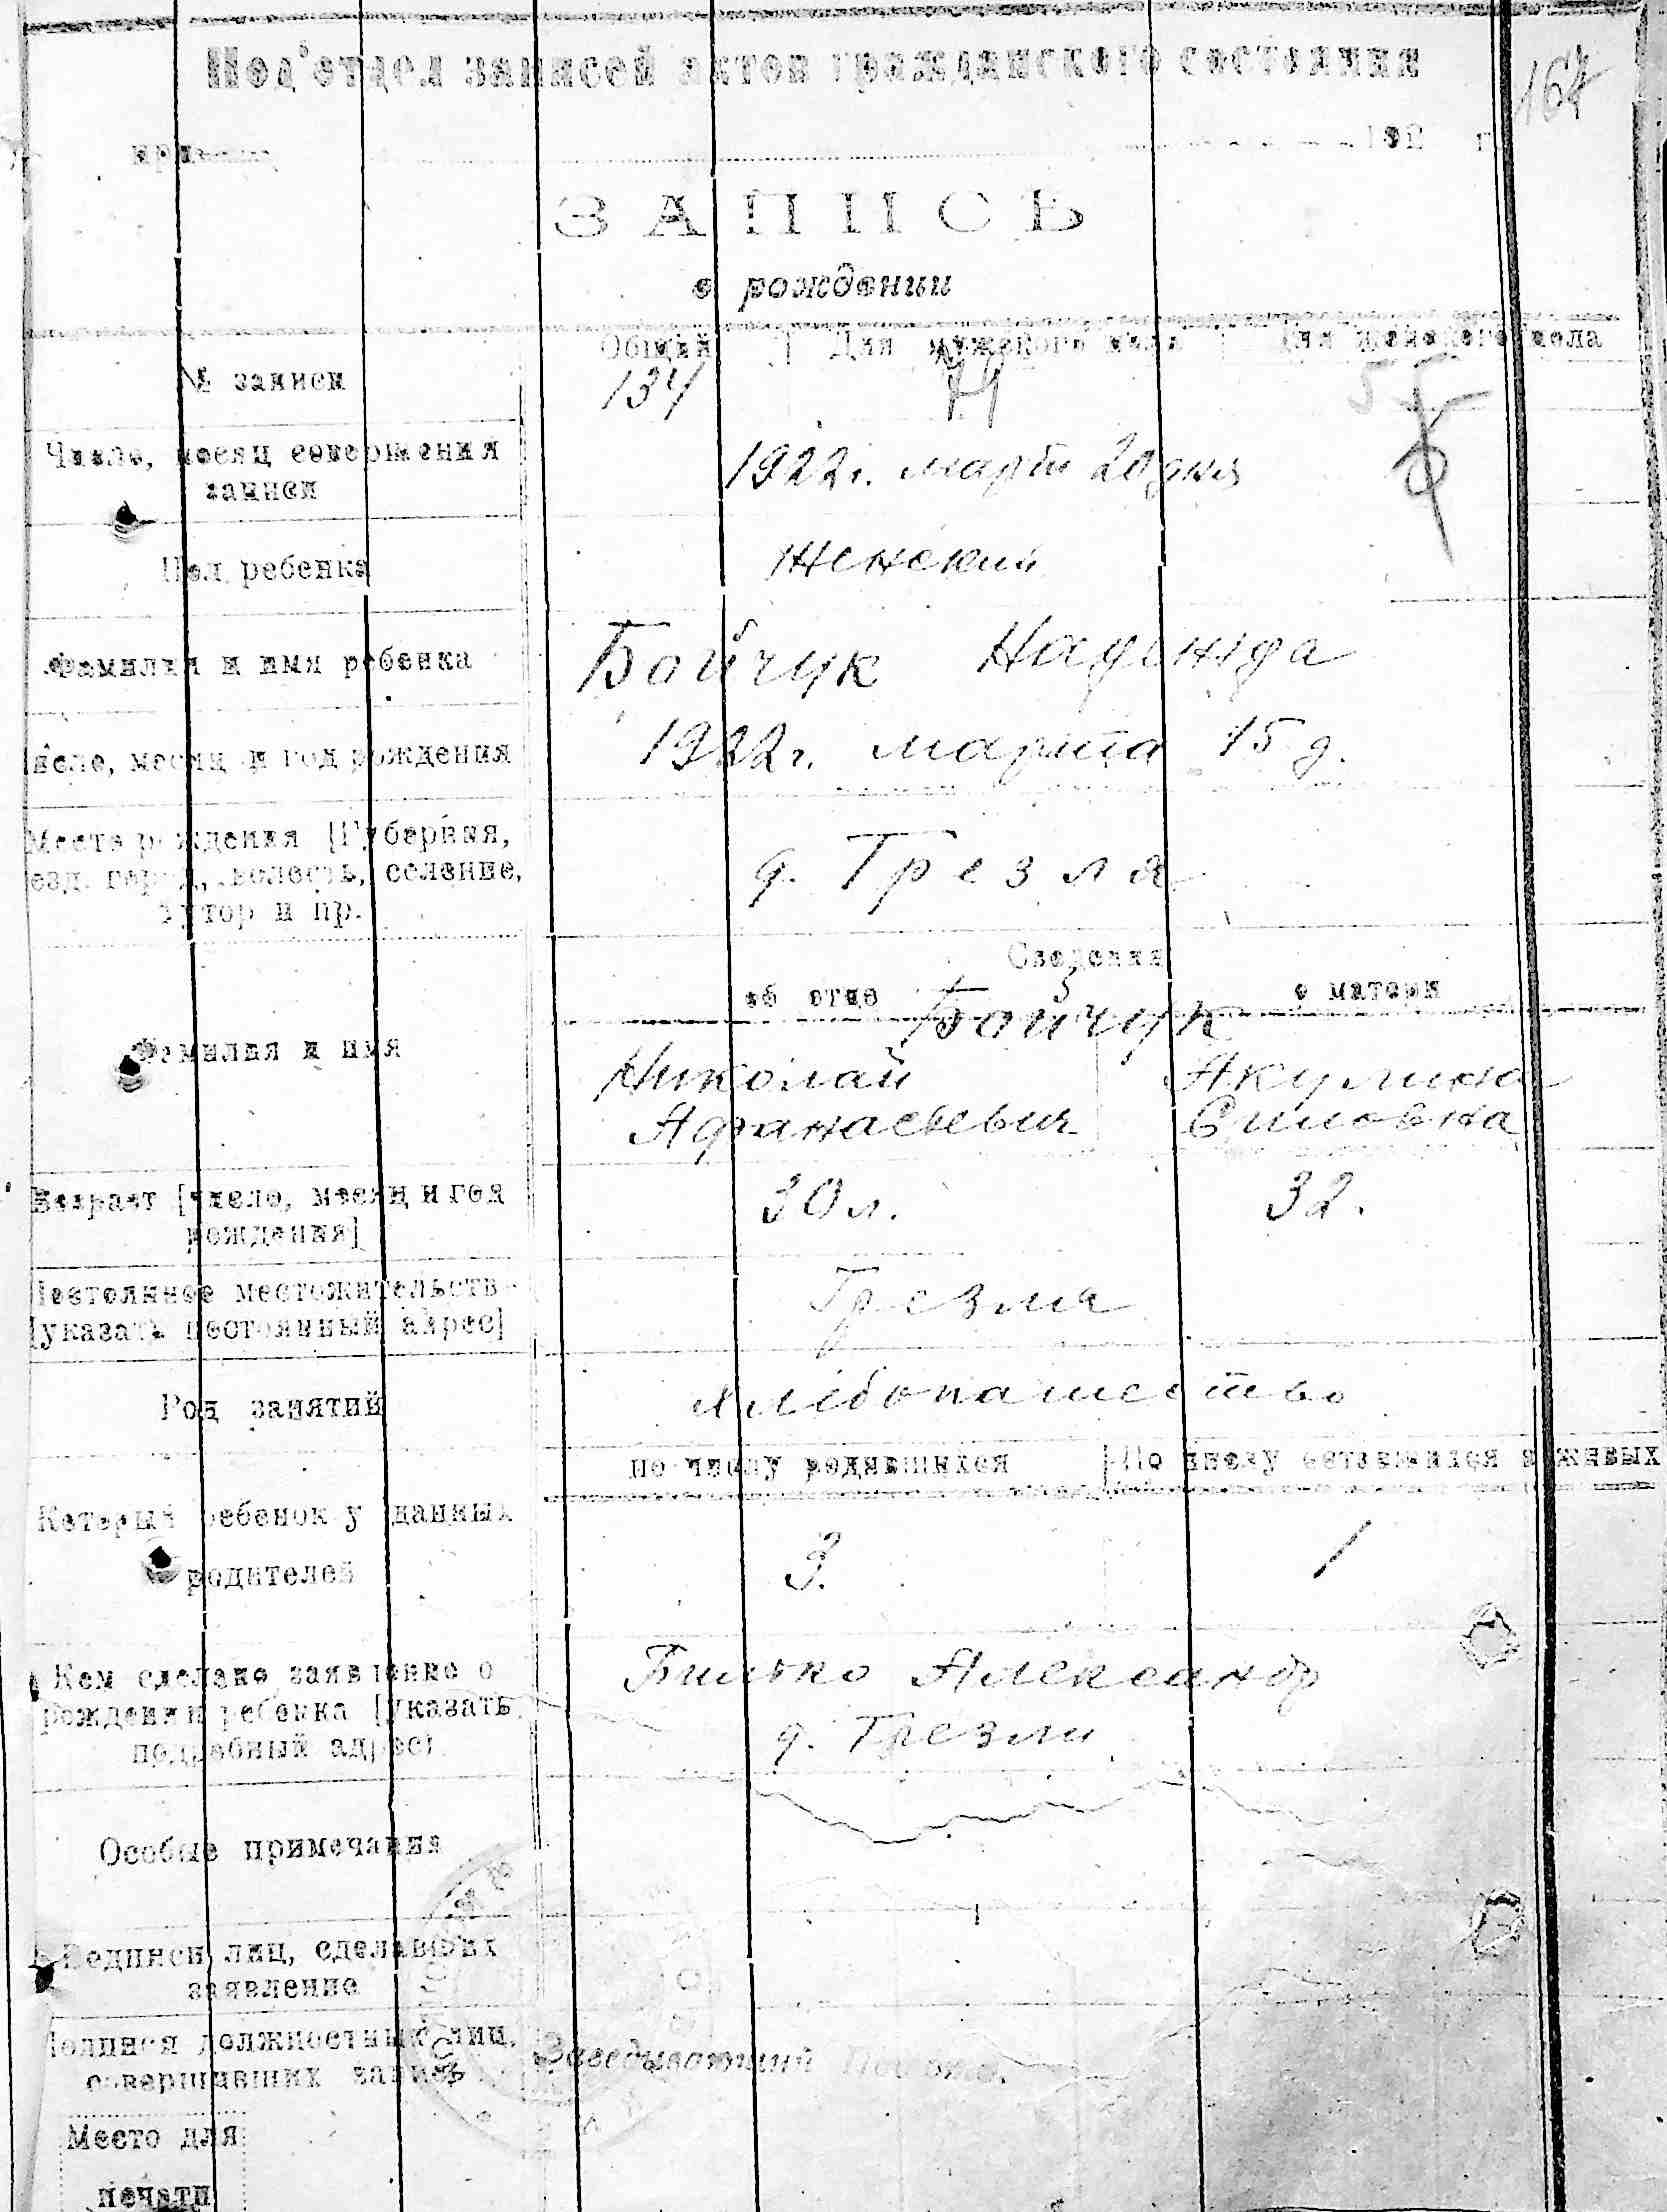 Под'отдел записей актов гражданского состояния
164
при
192 г
ЗАПИСЬ
о рождении
Общий Для мужского пола Для женского пола
№ записи 134
Число, месяц совершения
записи
1922 г. март 20 дня
Пол ребенка Женский
Фамилия и имя ребенка Бойчук Надежда
Число, месяц и год рождения 1922 г. марта 15 д.
Место рождения [Губерния,
уезд. город, волость, селение,
хутор и пр.
д. Грезля
Сведения
об отце о матери
Бойчук
Фамилия и имя
Николай Акулина
Афанасьевич Силовна
Возраст [число, месяц и год
рождения]
30 л. 32.
Постоянное местожительств
[указать постоянный адрес]
Грезля
Род занятий хлібопашество
по числу родившихся По числу оставшихся в живых
Который ребенок у данных
родителей
3. 1
Кем сделано заявление о
рождении ребенка [указать
подробный адрес]
Билько Александр
д. Грезли
Особые примечания
Подписи лиц, сделавших
заявление
Подписи должностных лиц,
совершивших запись
Заведывающий
Место для
печати